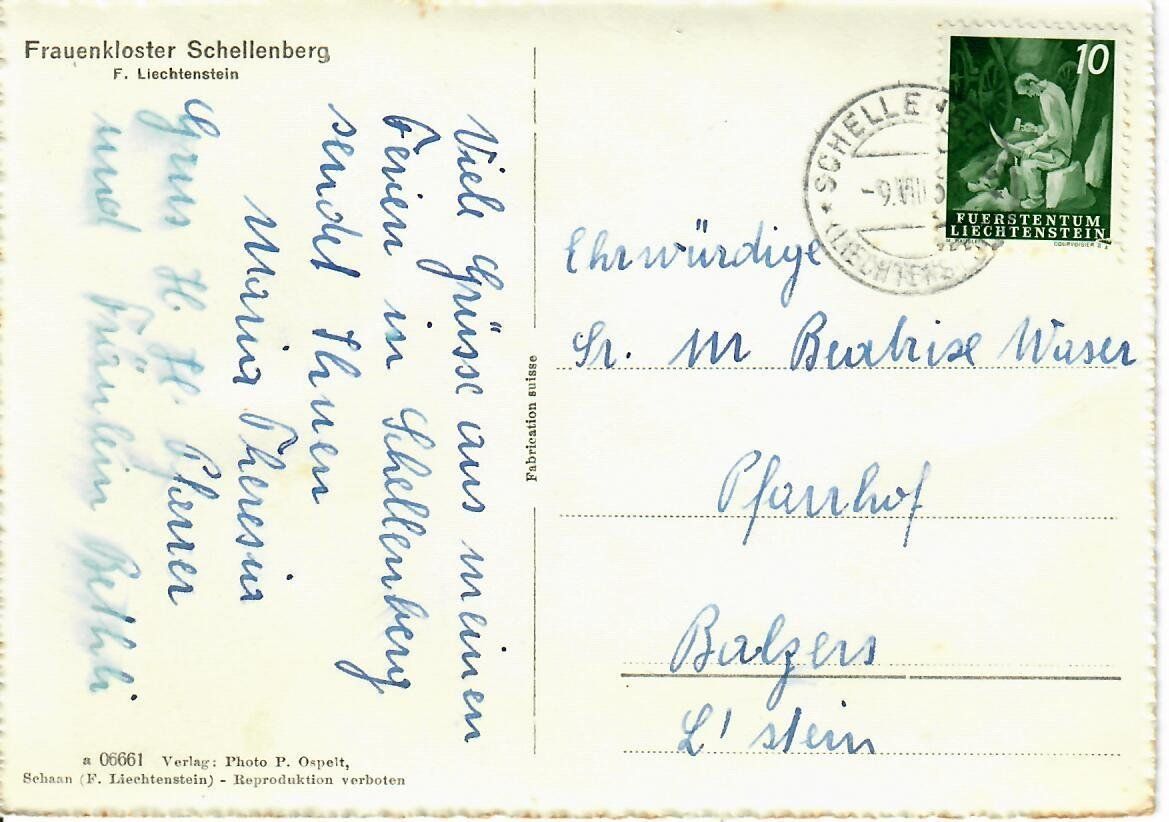 Frauenkloster Schellenberg
F. Liechtenstein
Viele Grüsse aus meinen
Ferien in Schellenberg
sendet Ihnen
Maria Theresia
Gruss H. H. Pfarrer
und Fräulein Bethli
a 06661 Verlag: Photo P. Ospelt,
Schaan (F. Liechtenstein) - Reproduktion verboten
Fabrication suisse
10
FUERSTENTUM
LIECHTENSTEIN
COURVOISIER S.A.
-9.VIII.5
Ehrwürdige
Sr. M Beatrise Waser
Pfarrhof
Balzers
L'stein